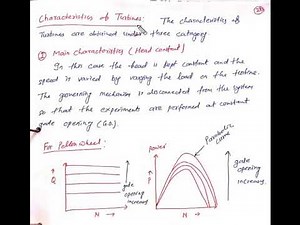 Characteristics of Turbines: The characteristics of
Turbines are obtained under three category.
① Main characteristics (Head constant)
In this case the head is kept constant and the
speed is varied by varying the load on the turbine.
The governing mechanism is disconnected from the system
so that the experiments are performed at constant
gate opening (G.O).
For Pelton wheel:
Power
Parabolic
curve
Q
gate
opening
increases
N →
P
N →
gate
opening
increases